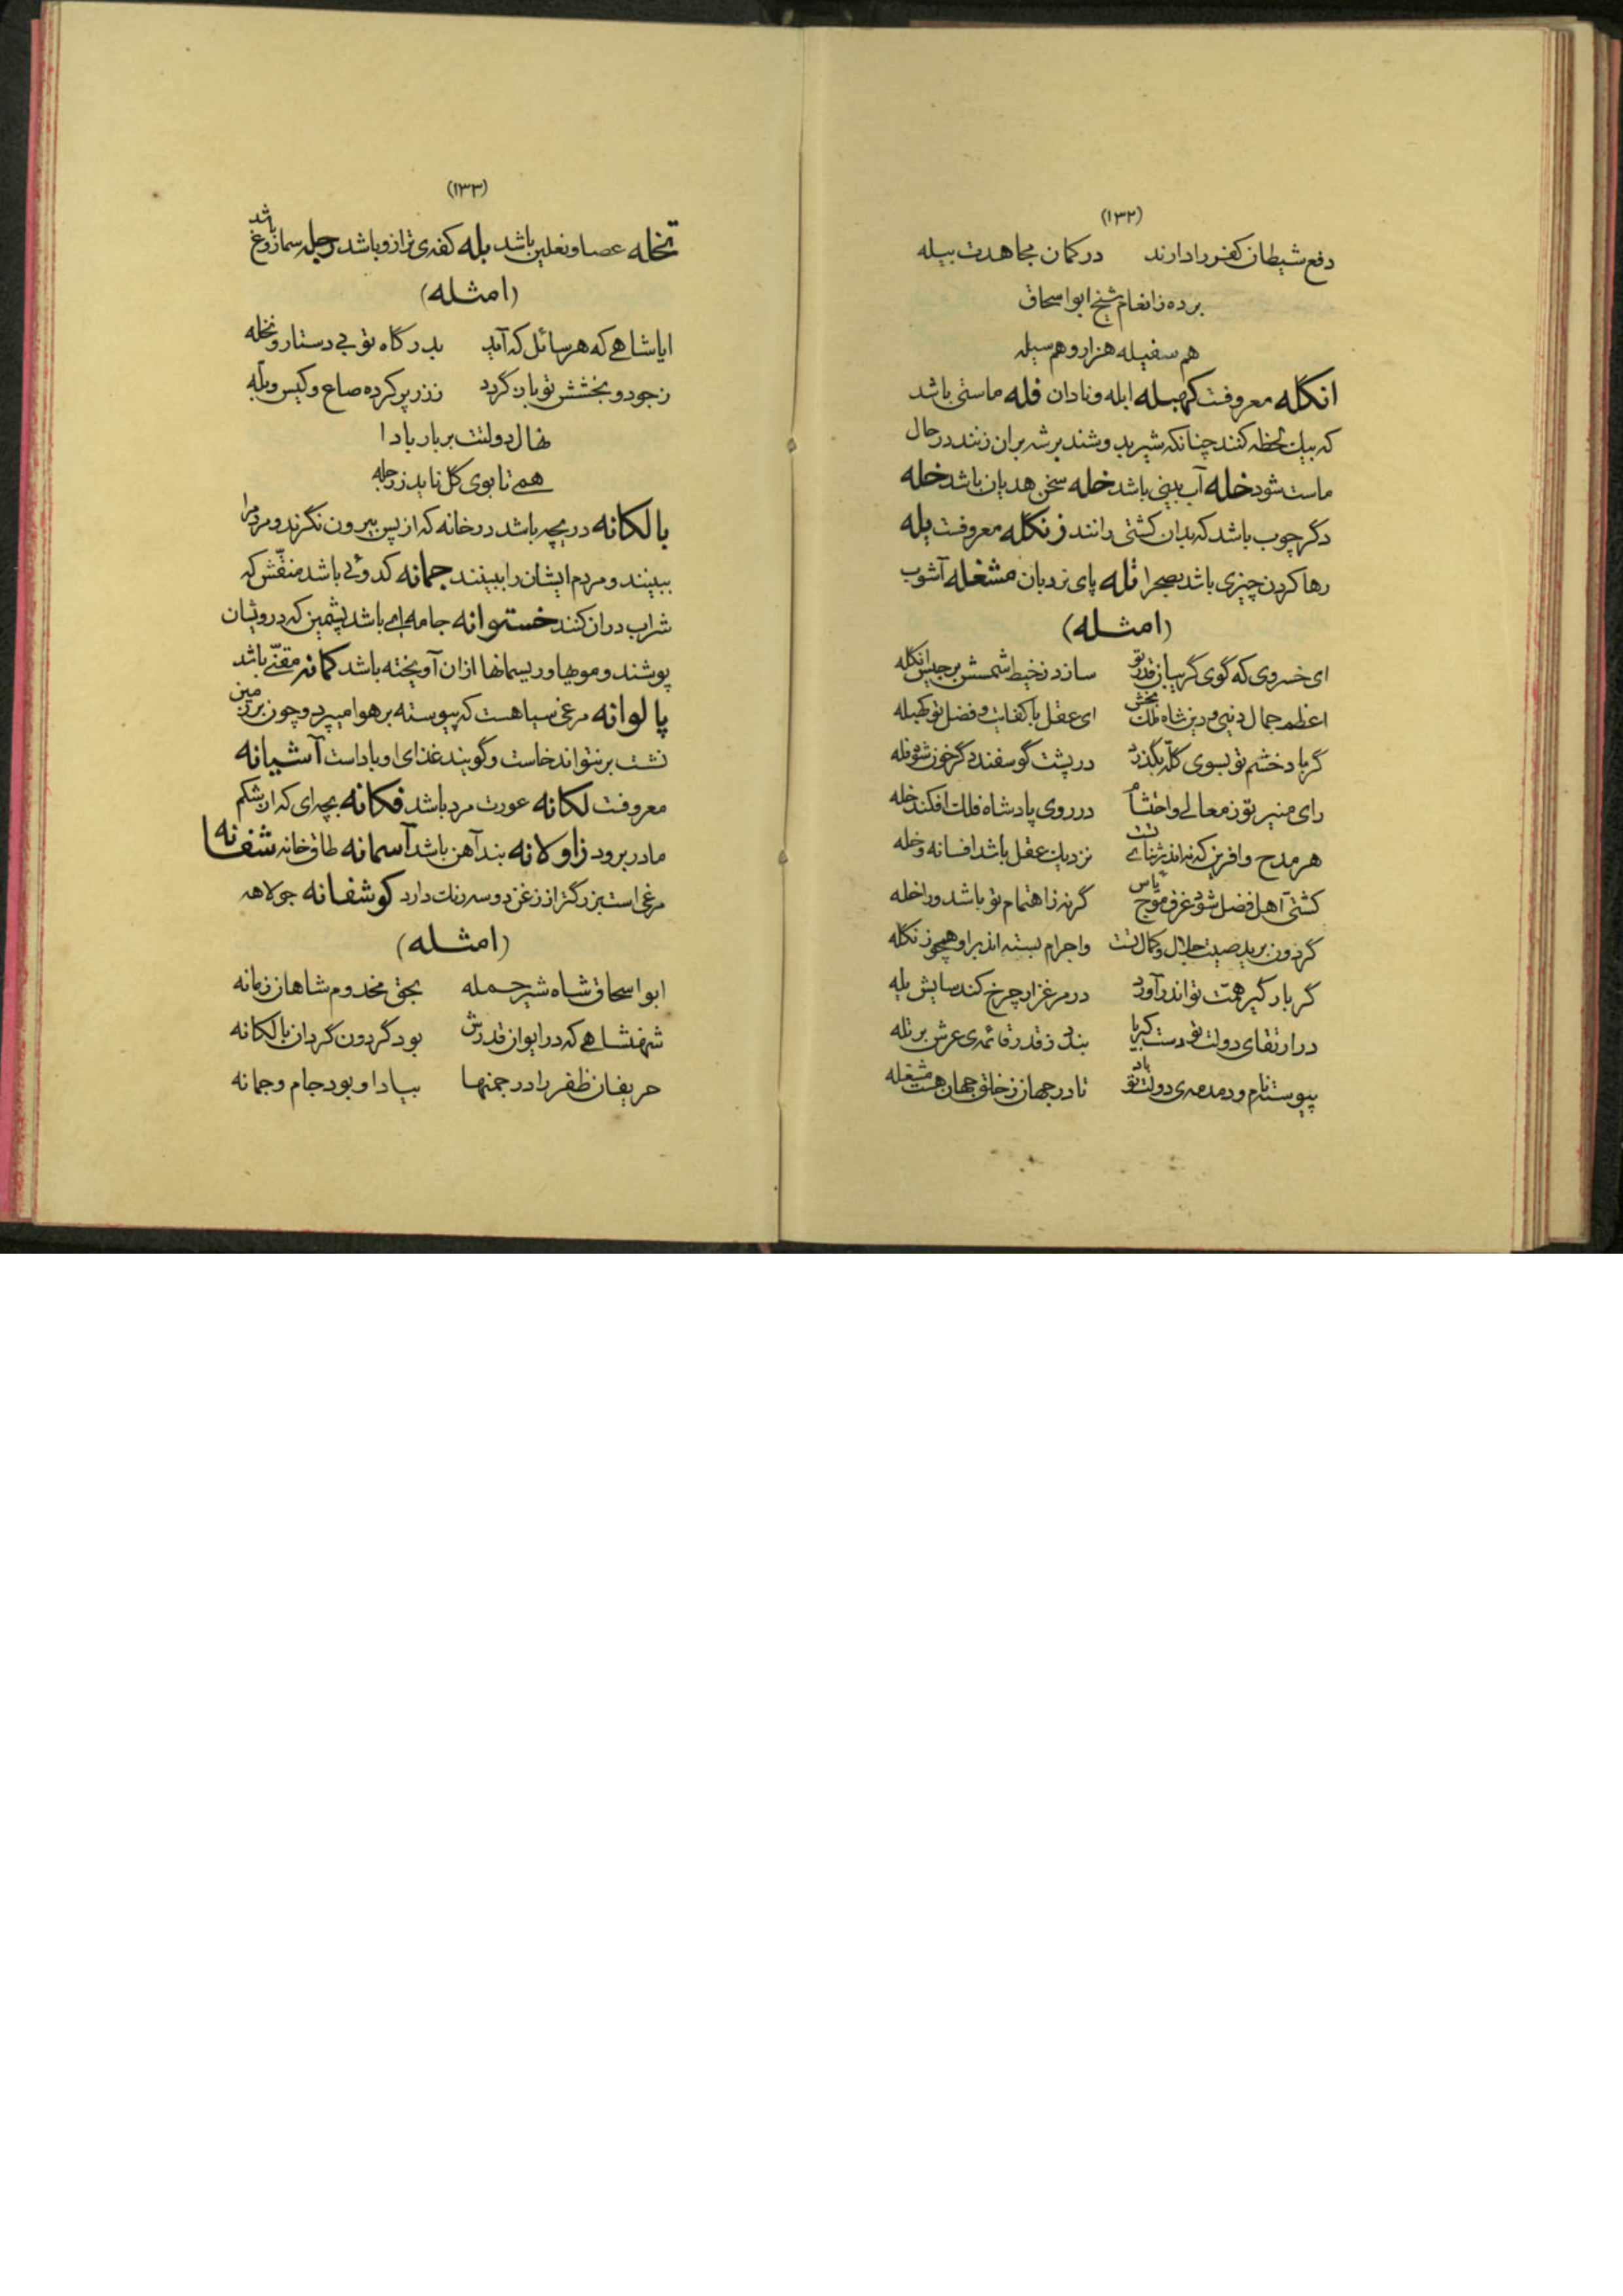 (۱۳۲)
دفع شیطان کفر را دارند در کمان مجاهدت بیله
برده ز انعام شیخ ابواسحاق
هم سفیله هزار و هم سیله
انگله معروفت کهبله ابله و نادان فله ماستی باشد
که بیک لحظه کنند چنانکه شیر بدوشند برشه بران زنند در حال
ماست شود خله آب بینی باشد خله سخن هدیان باشد خله
دگر چوب باشد که بدان کشتی رانند زنگله معروفت یله
رها کردن چیزی باشد بصحرا تله پای نردبان مشغله آشوب
(امثله)
ای خسروی که گوی گریبان قدر تو سازد ز خیط شمسش برجیس انگله
اعظم جمال دنیی و دین شاه ملک بخش ای عقل با کفایت و فضل تو کهبله
گر باد خشم تو بسوی گله بگذرد در پشت گوسفند دگر خون شود فله
رای منیر تو ز معالی و احتشام در روی پادشاه فلک افکند خله
هر مدح و افرین که نه اندر ثنای تست نزدیک عقل باشد افسانه و خله
کشتی اهل فضل شود غرق موج یاس گر نه ز اهتمام تو باشد ورا خله
گردون برید صیت جلال و کمال تست واجرام بسته اند براو همچو زنگله
گر بارگیر همت تو اندر آورد در مرغزار چرخ کند سایش یله
در ارتقای دولت تو دست کبریا بندد ز قدر قائمه‌ی عرش بر تله
پیوسته نام و دمدمه‌ی دولت تو باد تا در جهان ز خلق جهان هست مشغله
(۱۳۳)
تخله عصا و نعلین باشد پله کفه‌ی ترازو باشد رجله سماروغ باشد
(امثله)
ایا شاهے که هر سائل که آید بدرگاه تو بے دستار و تخله
ز جود و بخشش تو باز گردد ز زر پر کرده صاع و کیس و پله
نهال دولتت بر بار بادا
همے تا بوی گل ناید ز رجله
بالکانه دریچه باشد در خانه که از پس بیرون نگرند و مردم را
ببینند و مردم ایشان را نبینند جمانه کدوئے باشد منقش که
شراب دران کنند خستوانه جامه‌اے باشد پشمین که درویشان
پوشند و موهیا و ریسمانها ازان آویخته باشد کمانه مقنّے باشد
پالوانه مرغی سیاهست که پیوسته بر هوا میپرد و چون بر زمین
نشت برنتواند خاست و گویند غذای او باداست آشیانه
معروفت لکانه عورت مرد باشد فکانه بچه‌ای که از شکم
مادر برود زاولانه بند آهن باشد آسمانه طاق خانه شفانه
مرغی است بزرگتر از زغن دو سه رنگ دارد کوشفانه جولاهه
(امثله)
ابواسحاق شاه شیر حمله بحق مخدوم شاهان زمانه
شهنشاهے که در ایوان قدرش بود گردون گردان بالکانه
حریفان ظفر را در چمنها بیاد او بود جام و جمانه